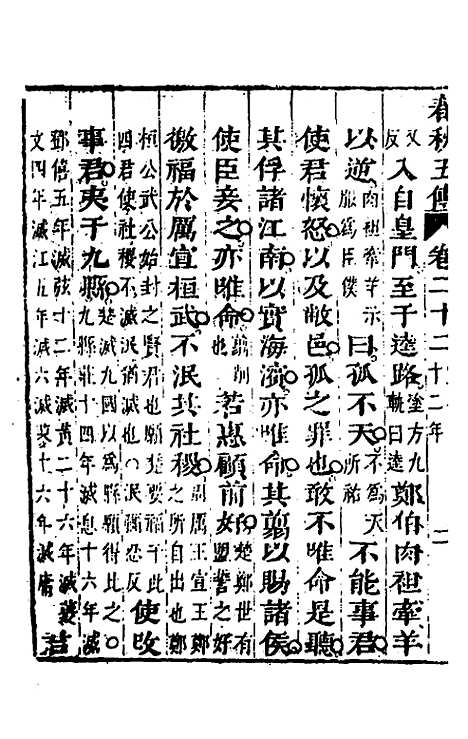 春秋五傳 卷二十二 十二年 二
又反入自皇門至于逵路塗方九軌曰逵鄭伯肉袒牽羊
以逆肉袒牽羊示服爲臣僕曰孤不天不爲天所祐不能事君
使君懷怒以及敝邑孤之罪也敢不唯命是聽
其俘諸江南以實海濱亦唯命其翦以賜諸侯
使臣妾之亦唯命翦削也若惠顧前好楚鄭世有盟誓之好
徼福於厲宣桓武不泯其社稷周厲王宣王鄭之所自出也鄭
桓公武公始封之賢君也願楚要福于此四君使社稷不滅泯猶滅也○泯彌忍反使改
事君夷于九縣楚滅九國以爲縣願得比之○九縣莊十四年滅息十六年滅
鄧僖五年滅弦十二年滅黃二十六年滅夔文四年滅江五年滅六滅蓼十六年滅庸君